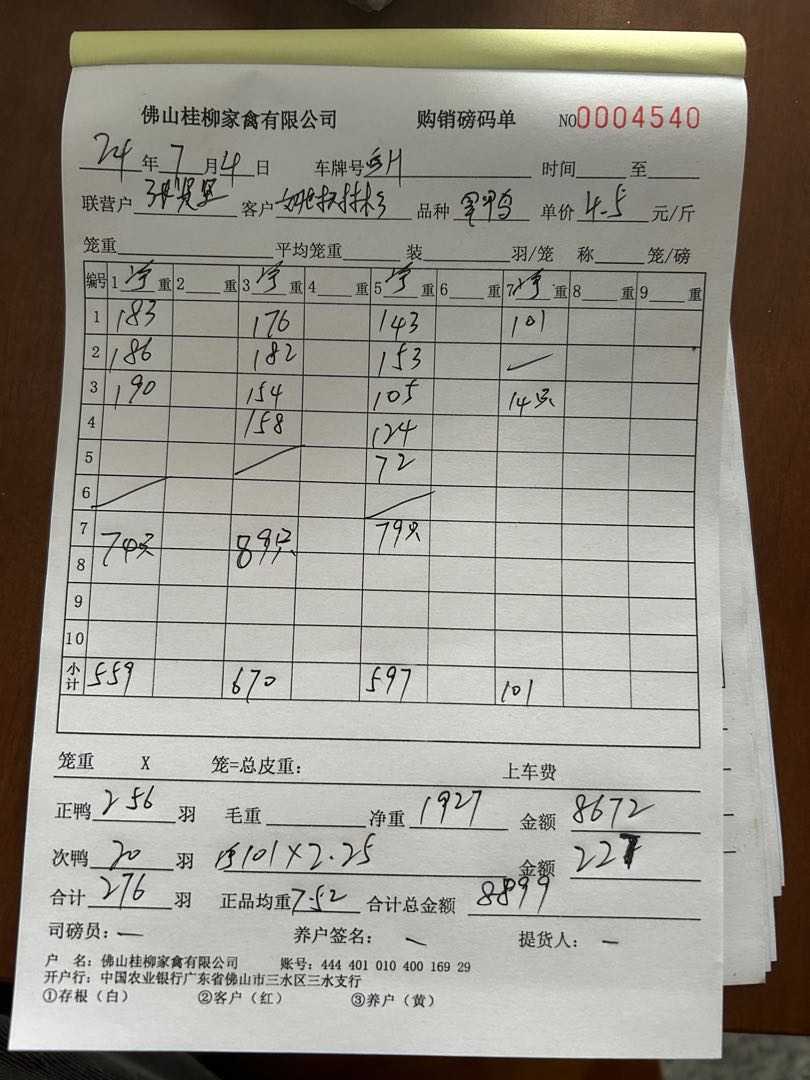 佛山桂柳家禽有限公司 购销磅码单 NO0004540
24年7月4日 车牌号 时间 至
联营户 客户 品种 单价 4.5 元/斤
笼重 平均笼重 装 羽/笼 称 笼/磅
编号 1 净 重 2 重 3 净 重 4 重 5 净 重 6 重 7 净 重 8 重 9 重
1 183 176 143 101
2 186 182 153
3 190 154 105 14只
4 158 124
5 72
6
7 74只 89只 79只
8
9
10
小计 559 670 597 101
笼重 X 笼=总皮重: 上车费
正鸭 256 羽 毛重 净重 1927 金额 8672
次鸭 20 羽 101×2.25 金额 227
合计 276 羽 正品均重 7.52 合计总金额 8899
司磅员: 养户签名: 提货人:
户 名: 佛山桂柳家禽有限公司 账号: 444 401 010 400 169 29
开户行: 中国农业银行广东省佛山市三水区三水支行
①存根(白) ②客户(红) ③养户(黄)